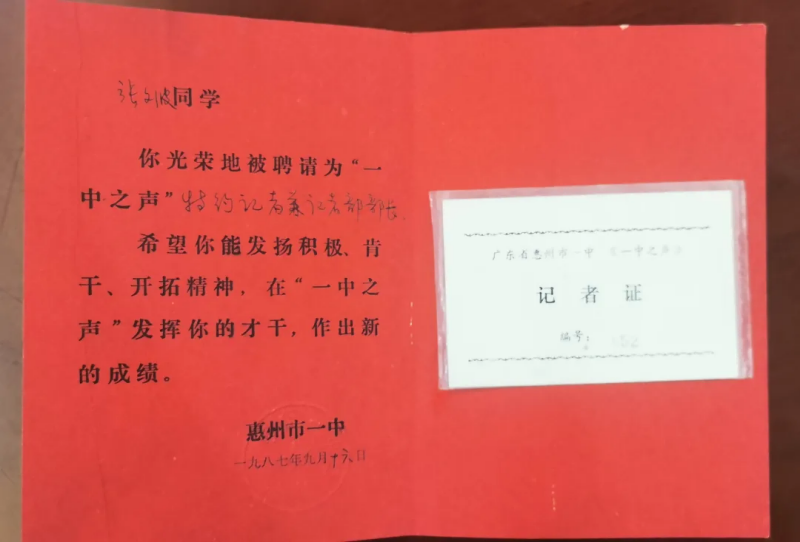 张文波同学
你光荣地被聘请为“一
中之声”特约记者兼记者部部长.
希望你能发扬积极、肯
干、开拓精神，在“一中之
声”发挥你的才干，作出新
的成绩。
惠州市一中
一九八七年九月十六日
广东省惠州市一中《一中之声》
记者证
编号：